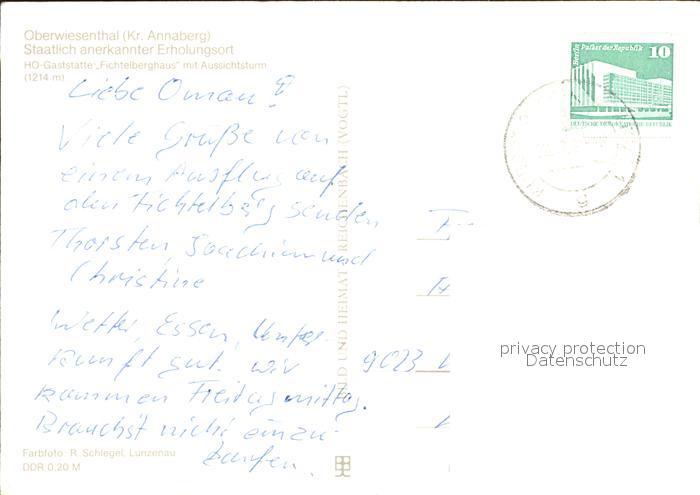 Oberwiesenthal (Kr. Annaberg)
Staatlich anerkannter Erholungsort
HO-Gaststätte „Fichtelberghaus" mit Aussichtsturm
(1214 m)
Liebe Oma!
Viele Grüße von
einem Ausflug auf
den Fichtelberg senden
Thorsten, Joachim und
Christine
Wetter, Essen, Unter-
kunft gut. Wir
kommen Freitagmittag.
Brauchst nicht einzu-
kaufen.
Farbfoto: R. Schlegel, Lunzenau
DDR 0,20 M
BILD UND HEIMAT REICHENBACH (VOGTL)
Berlin Palast der Republik
10
DEUTSCHE DEMOKRATISCHE REPUBLIK
F
9023
privacy protection
Datenschutz